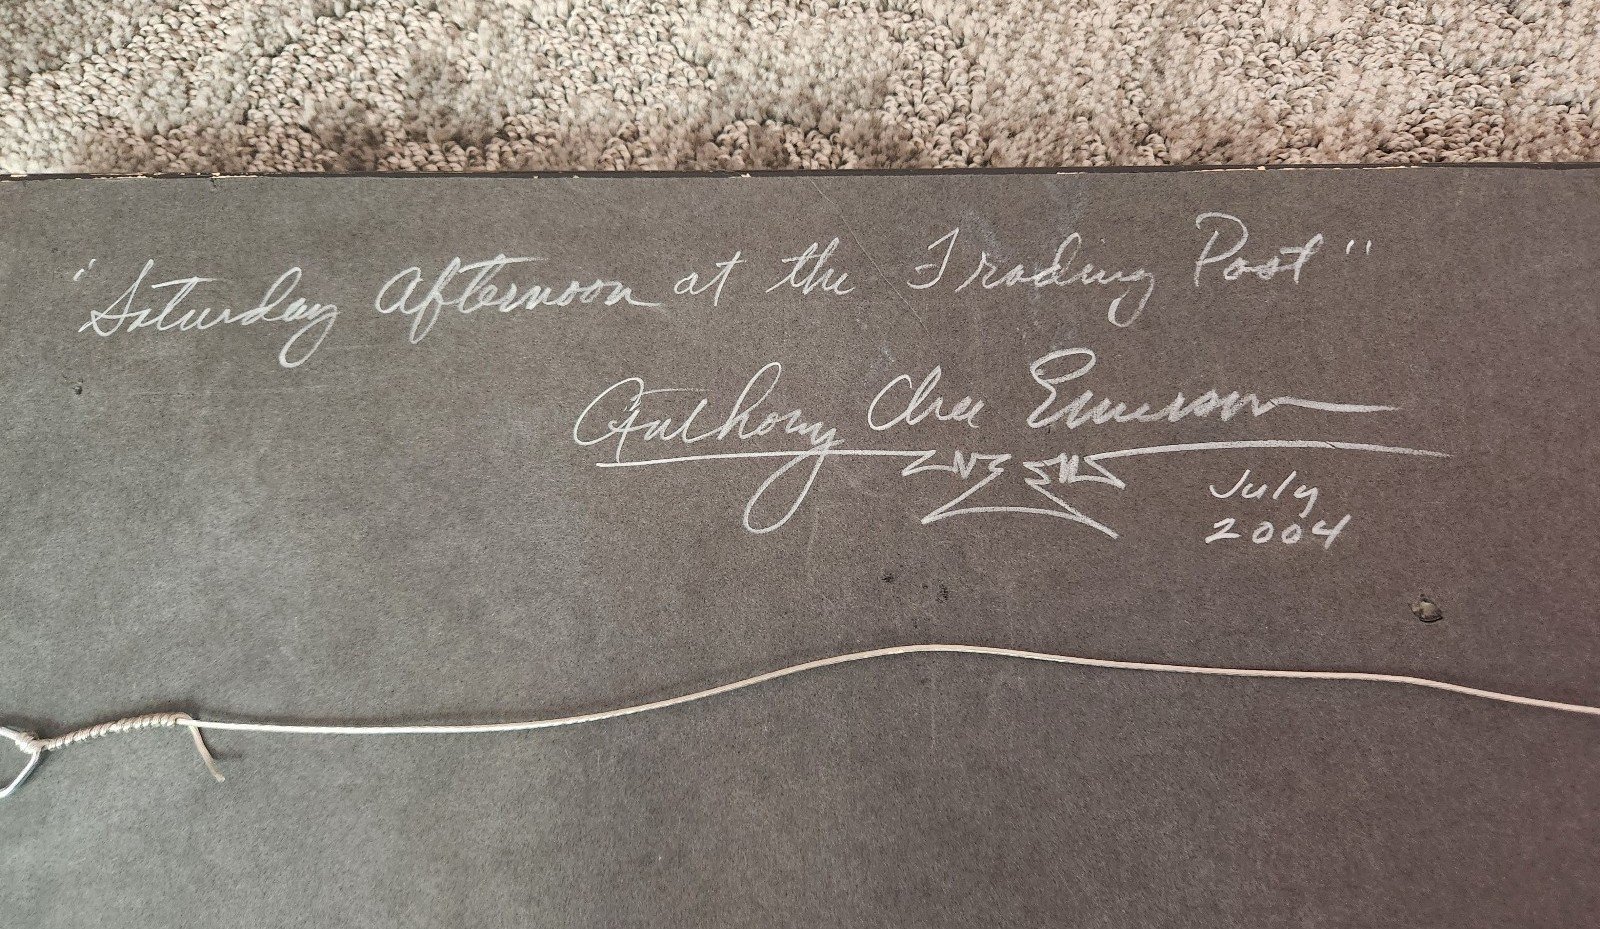 "Saturday Afternoon at the Trading Post"
Anthony Chee Emerson
July
2004